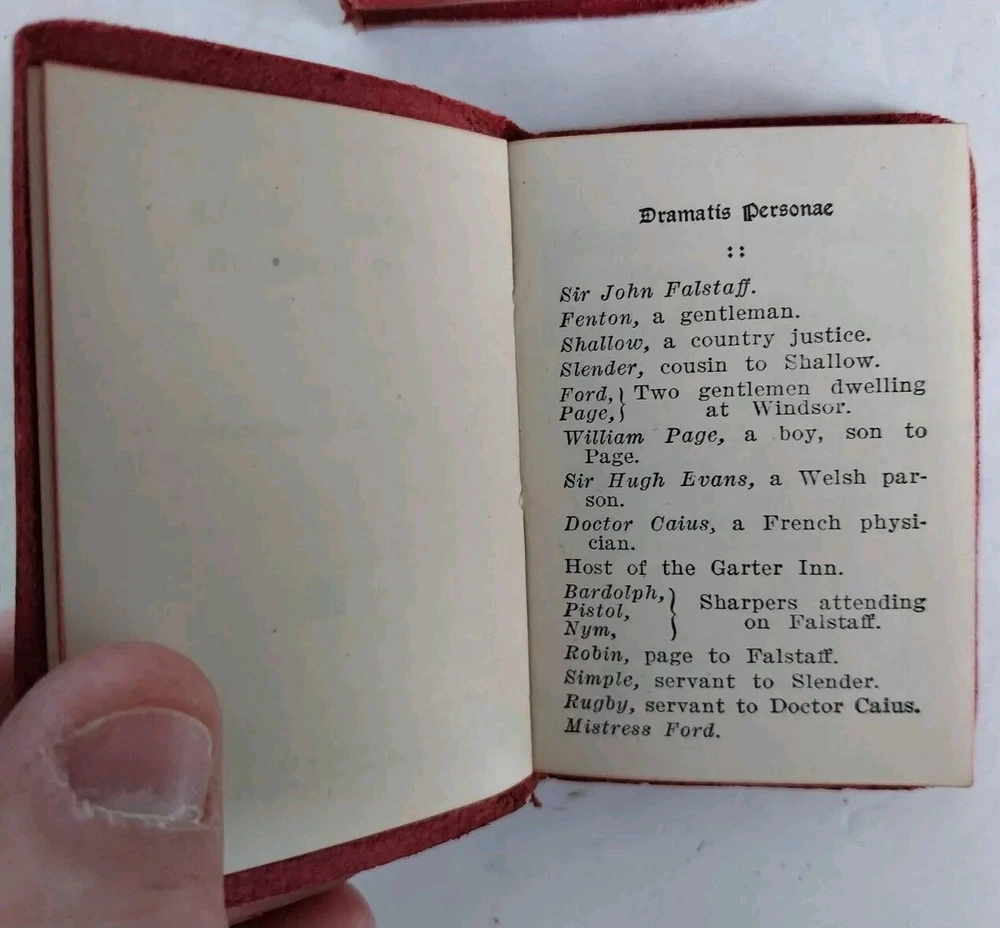 Dramatis Personae
Sir John Falstaff.
Fenton, a gentleman.
Shallow, a country justice.
Slender, cousin to Shallow.
Ford, } Two gentlemen dwelling
Page, } at Windsor.
William Page, a boy, son to
Page.
Sir Hugh Evans, a Welsh par-
son.
Doctor Caius, a French physi-
cian.
Host of the Garter Inn.
Bardolph, }
Pistol, } Sharpers attending
Nym, } on Falstaff.
Robin, page to Falstaff.
Simple, servant to Slender.
Rugby, servant to Doctor Caius.
Mistress Ford.